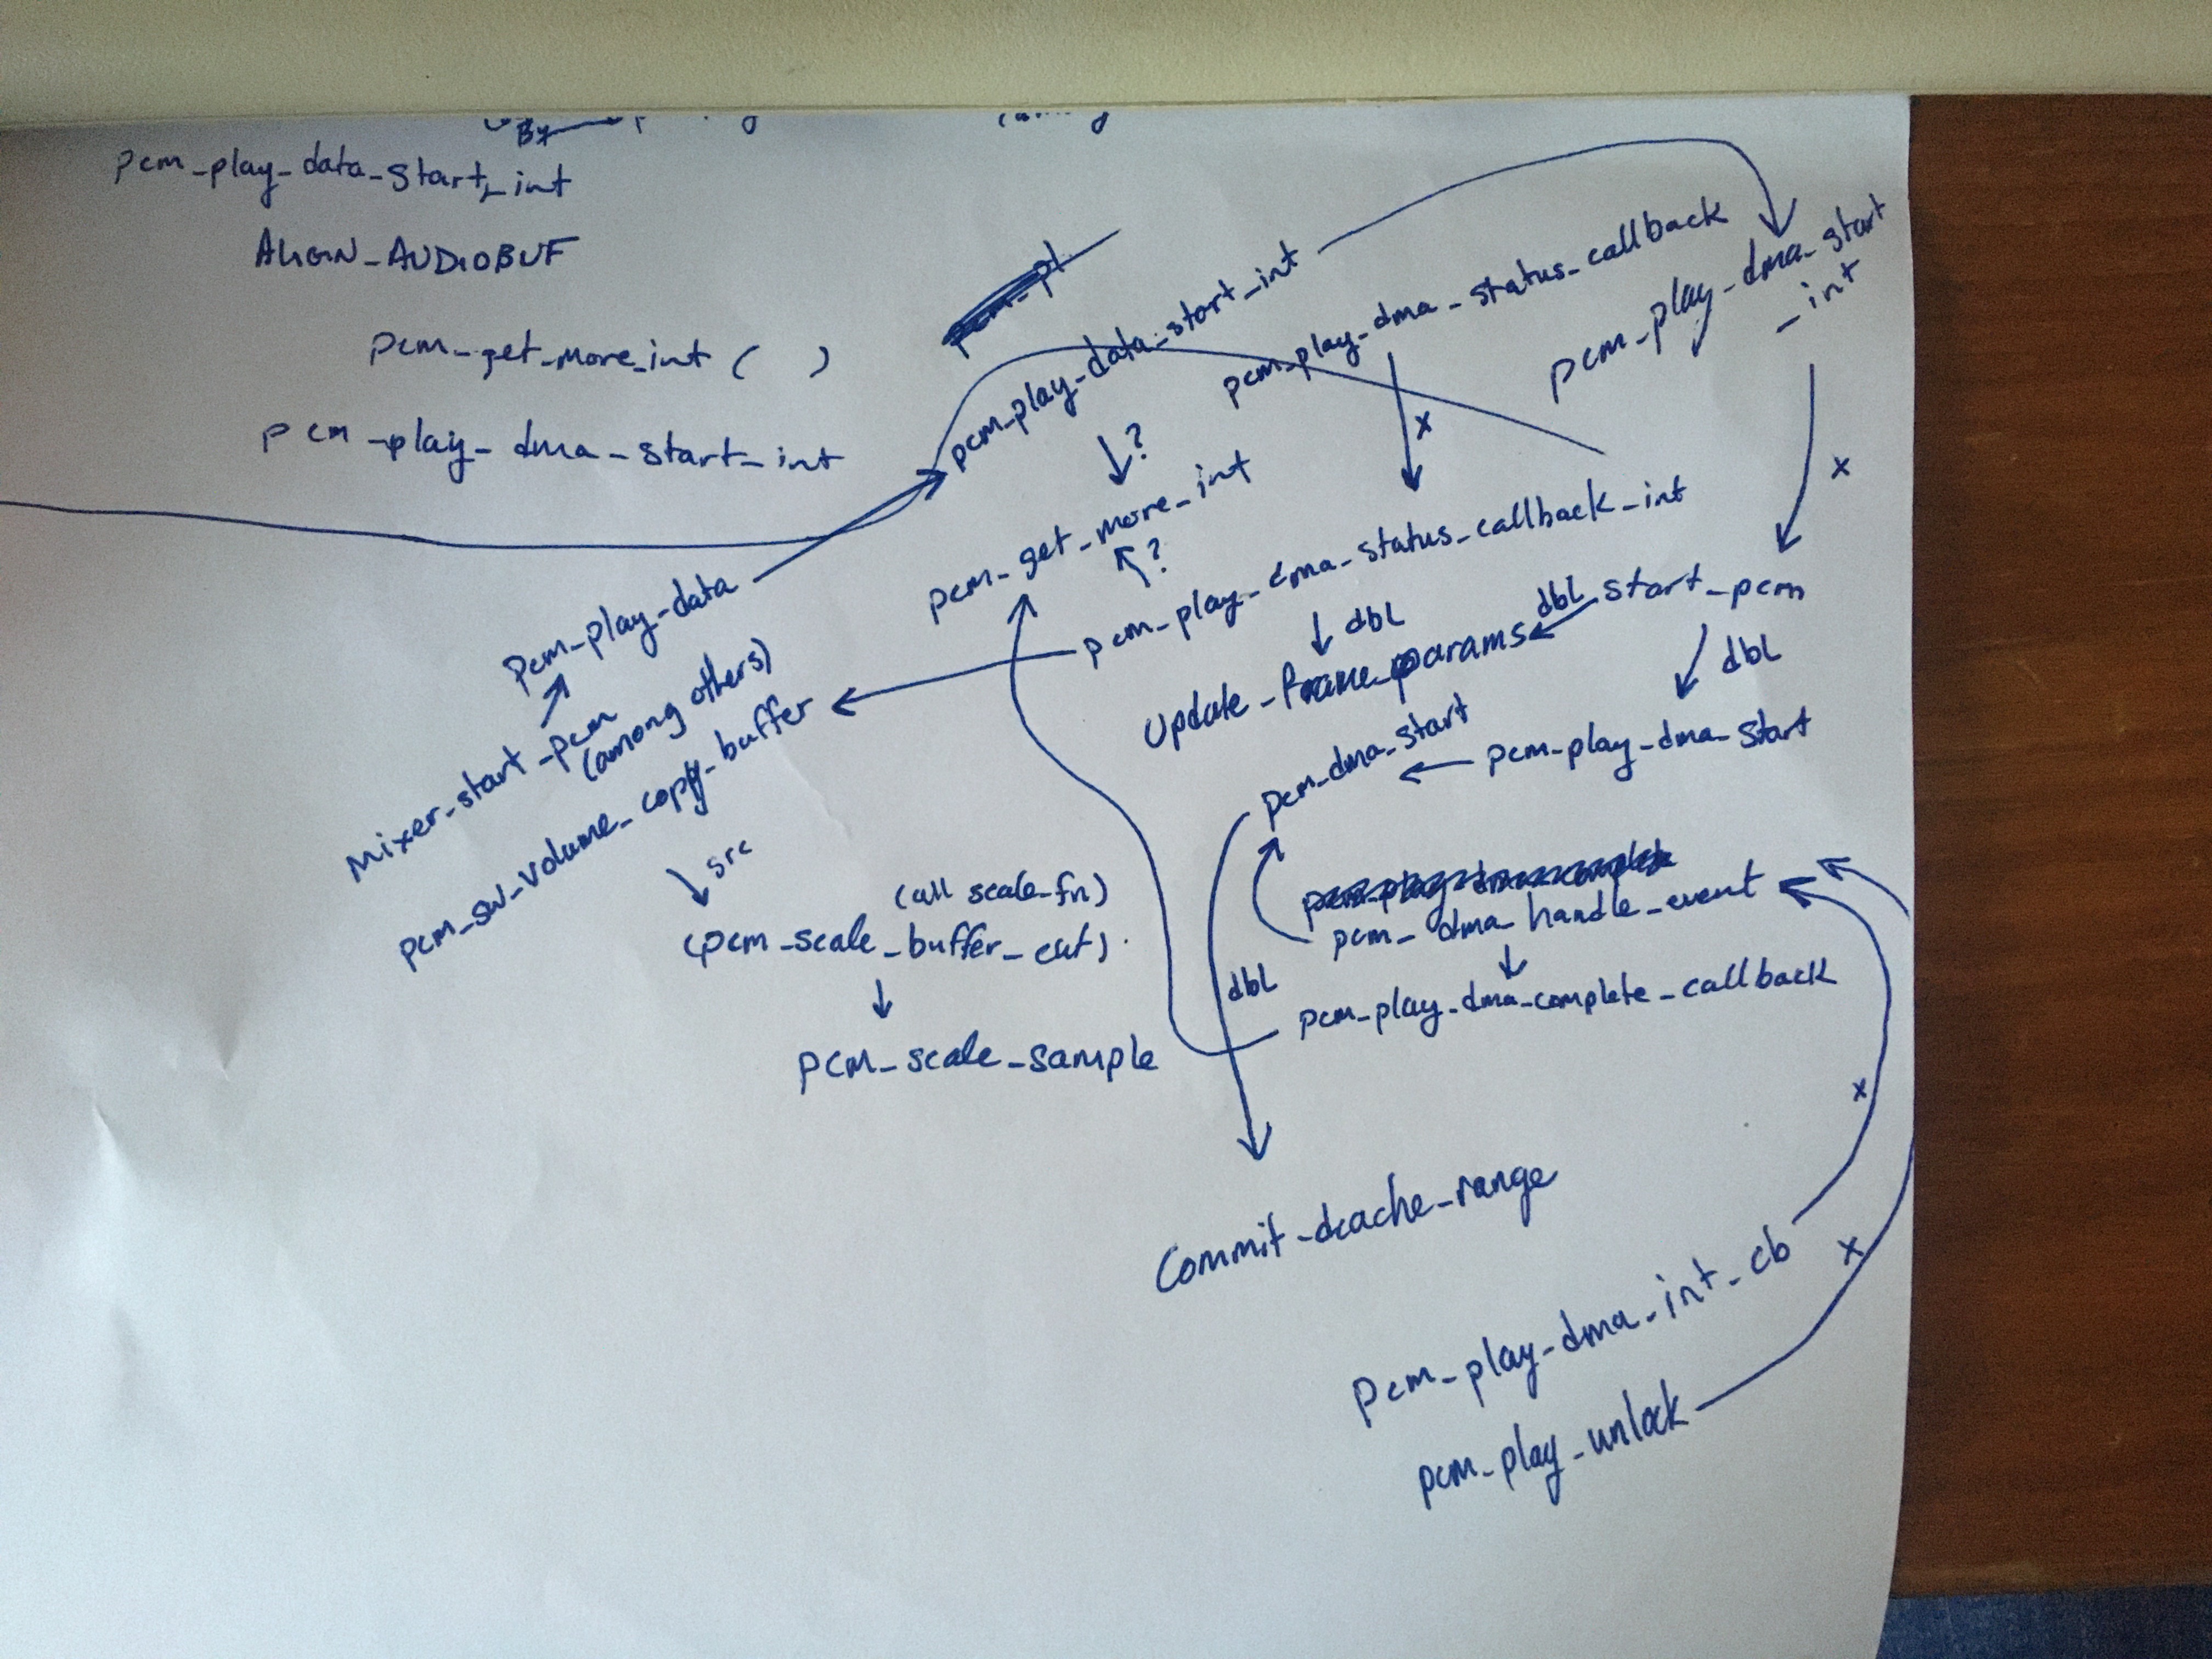 By
pcm_play_data_start_int
ALIGN_AUDIOBUF
pcm_get_more_int ( )
pcm_play_dma_start_int
pcm_play_data_start_int
pcm_play_dma_status_callback
pcm_play_dma_start
_int
?
x
x
pcm_get_more_int
?
pcm_play_dma_status_callback_int
dbl
dbl
start_pcm
update_frame_params
dbl
pcm_play_data
mixer_start_pcm
(among others)
pcm_sw_volume_copy_buffer
src
(all scale_fn)
(pcm_scale_buffer_cut)
pcm_scale_sample
pcm_dma_start
pcm_play_dma_start
pcm_dma_handle_event
dbl
pcm_play_dma_complete_callback
x
commit_dcache_range
x
pcm_play_dma_int_cb
pcm_play_unlock